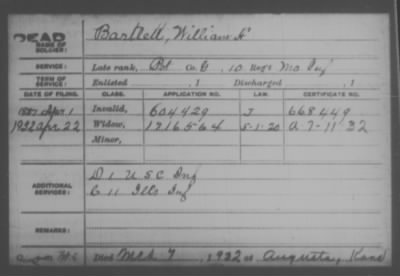 DEAD
NAME OF SOLDIER:
Bartlett, William H
SERVICE:
Late rank, Pvt Co. G, 10 Reg't Mo Inf
TERM OF SERVICE:
Enlisted , 1 Discharged , 1
DATE OF FILING. CLASS. APPLICATION NO. LAW. CERTIFICATE NO.
1887 Apr 1 Invalid, 604429 J 668449
1922 Apr 22 Widow, 1186564 5-1-20 A-7-11-32
Minor,
ADDITIONAL SERVICES:
D 1 U S C Inf
C 11 Ills Inf
REMARKS:
Died Mch 7, 1922 at Augusta, Kans